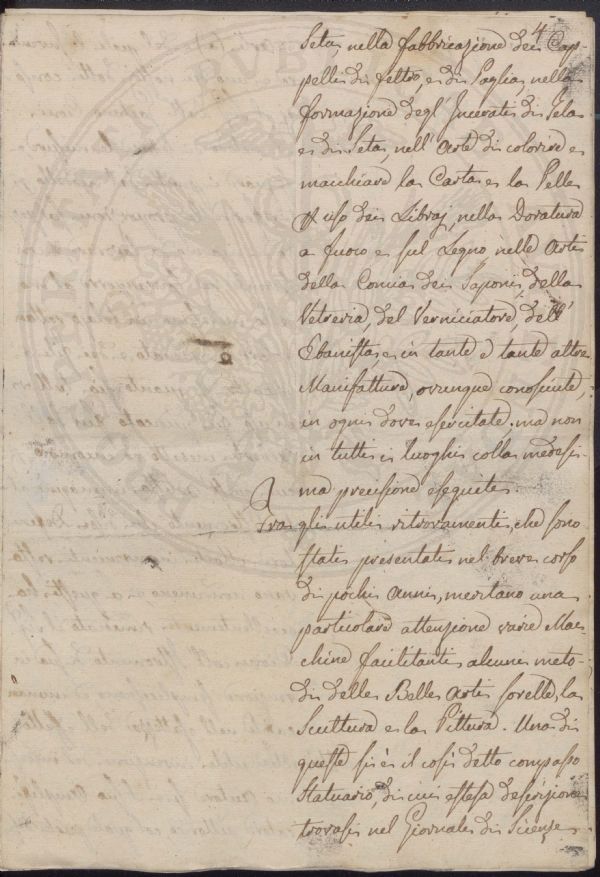 4
Seta, nella fabbricazione dei Cap-
pelli di feltro, e di Paglia, nella
formazione degl' Incerati di Tela
e di Seta, nell' Arte di colorire e
macchiare la Carta e la Pelle
ad uso dei Libraj, nella Doratura
a fuoco e sul Legno, nelle Arti
della Concia dei Saponi, della
Vetreria, del Verniciatore, dell'
Ebanista, e in tante e tante altre
Manifatture, ovunque conosciute,
in ogni dove esercitate, ma non
in tutti i luoghi colla medesi-
ma precisione eseguite.
Tra gli utili ritrovamenti, che sono
stati presentati nel breve corso
di pochi Anni, meritano una
particolare attenzione varie Mac-
chine facilitanti alcuni meto-
di delle Belle Arti sorelle, la
Scultura e la Pittura. Una di
queste si è il così detto compasso
Statuario, di cui estesa descrizione
trovasi nel Giornale di Scienze